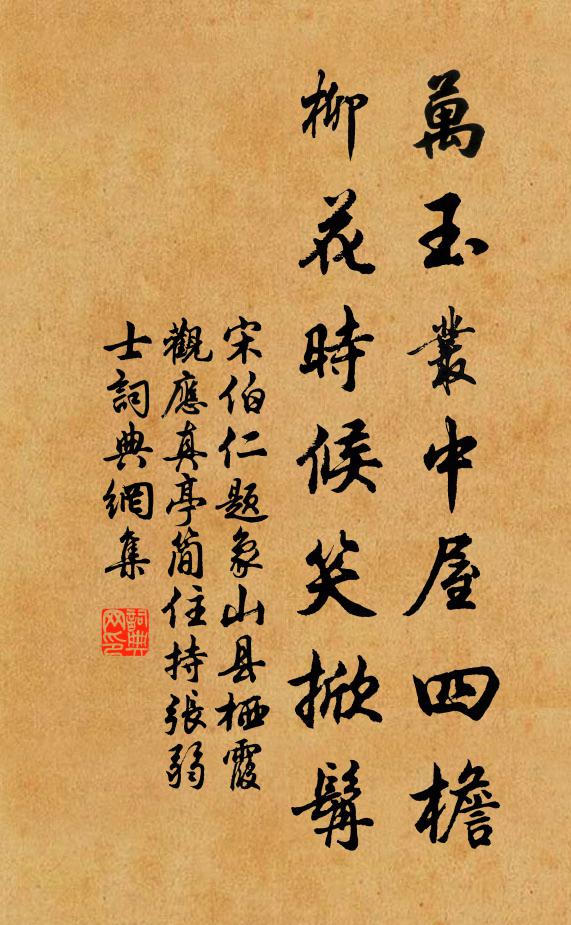 萬玉叢中屋四檐
柳花時候笑掀髯
宋伯仁题象山县栖霞
觀應真亭简住持張弱
士詞典網集
詞典网印